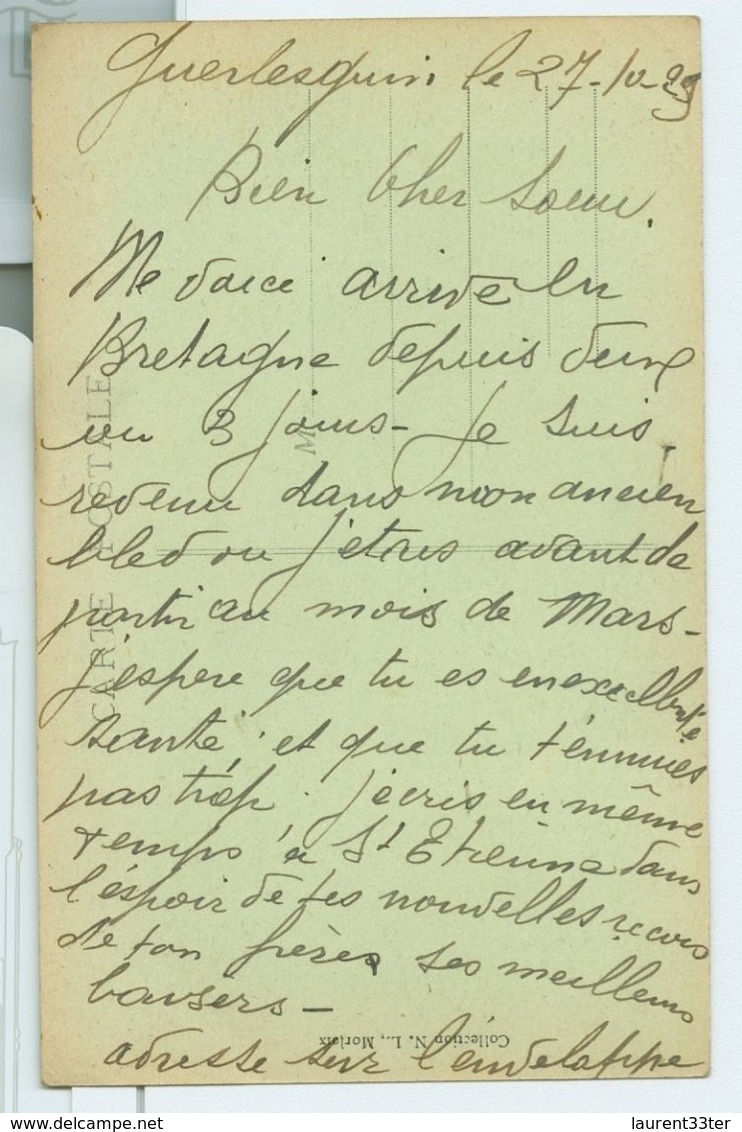 Guerlesquin le 27-10-29
Bien Cher Soeur.
Me voici arrivé en
Bretagne depuis deux
ou 3 jours - Je suis
revenu dans mon ancien
bled ou j'étais avant de
partir au mois de Mars -
J'espere que tu es en excellente
santé, et que tu t'ennuies
pas trop. J'écris en même
temps à St Etienne dans
l'éspoir de tes nouvelles reçois
de ton frère, ses meilleurs
baisers -
adresse sur l'enveloppe
CARTE POSTALE
M
Collection N. L., Morlaix
laurent33ter